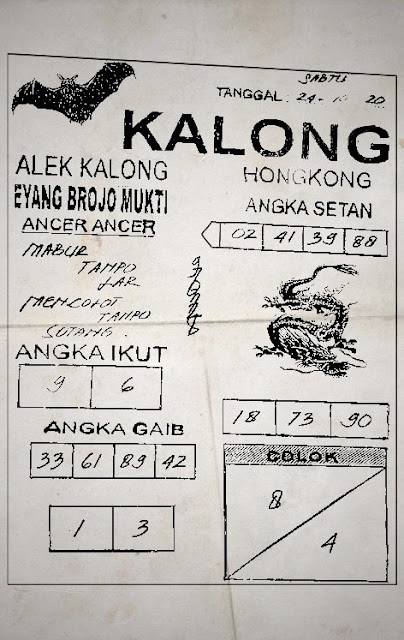 SABTU
TANGGAL : 24- 10 20
KALONG
ALEK KALONG
HONGKONG
EYANG BROJO MUKTI
ANGKA SETAN
ANCER ANCER
02 41 39 88
MABUR
TANPO
LAR
MENCOLOT
TANPO
SUTANG.
ANGKA IKUT
9 6
18 73 90
ANGKA GAIB
COLOK
33 61 89 42
8
1 3
4